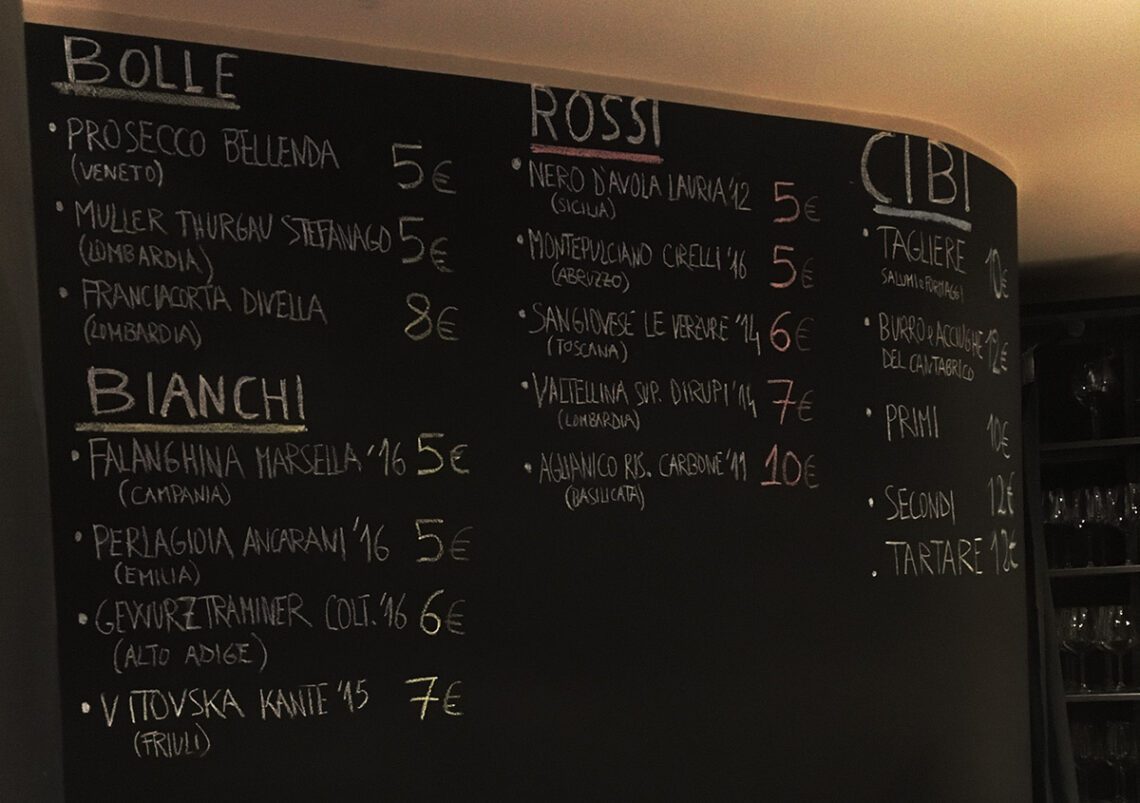 BOLLE
• PROSECCO BELLENDA 5€
(VENETO)
• MULLER THURGAU STEFANAGO 5€
(LOMBARDIA)
• FRANCIACORTA DIVELLA 8€
(LOMBARDIA)
BIANCHI
• FALANGHINA MARSELLA '16 5€
(CAMPANIA)
• PERLAGIOIA ANCARANI '16 5€
(EMILIA)
• GEWURZTRAMINER COLT. '16 6€
(ALTO ADIGE)
• VITOVSKA KANTE '15 7€
(FRIULI)
ROSSI
• NERO D'AVOLA LAURIA '12 5€
(SICILIA)
• MONTEPULCIANO CIRELLI '16 5€
(ABRUZZO)
• SANGIOVESE LE VERZURE '14 6€
(TOSCANA)
• VALTELLINA SUP. DIRUPI '14 7€
(LOMBARDIA)
• AGLIANICO RIS. CARBONE '11 10€
(BASILICATA)
CIBI
• TAGLIERE 10€
SALUMI e FORMAGGI
• BURRO e ACCIUGHE 12€
DEL CANTABRICO
• PRIMI 10€
• SECONDI 12€
. TARTARE 12€